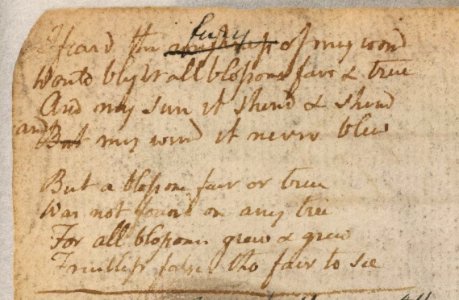 I feard the fury of my wind
Would blight all blossoms fair & true
And my sun it shind & shind
and my wind it never blew
But a blossom fair or true
Was not found on any tree
For all blossoms grew & grew
Fruitless false tho fair to see